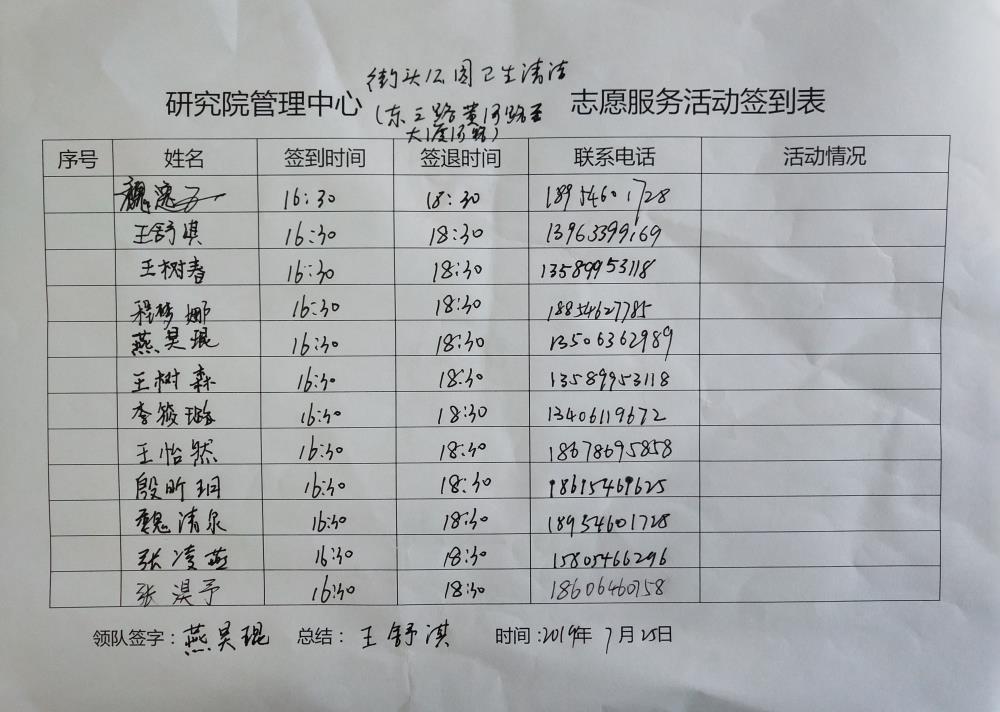 街头公园卫生清洁
研究院管理中心（东三路黄河路至大渡河路）志愿服务活动签到表
序号 姓名 签到时间 签退时间 联系电话 活动情况
魏 16:30 18:30 18954601728
王舒淇 16:30 18:30 13963399169
王树春 16:30 18:30 13589953118
程梦娜 16:30 18:30 18854627785
燕昊琨 16:30 18:30 13506362989
王树森 16:30 18:30 13589953118
李筱璐 16:30 18:30 13406119672
王怡然 16:30 18:30 18678695858
殷昕玥 16:30 18:30 18615469625
魏清泉 16:30 18:30 18954601728
张凌燕 16:30 18:30 15805466296
张淏予 16:30 18:30 18606460758
领队签字：燕昊琨 总结：王舒淇 时间：2019年7月25日